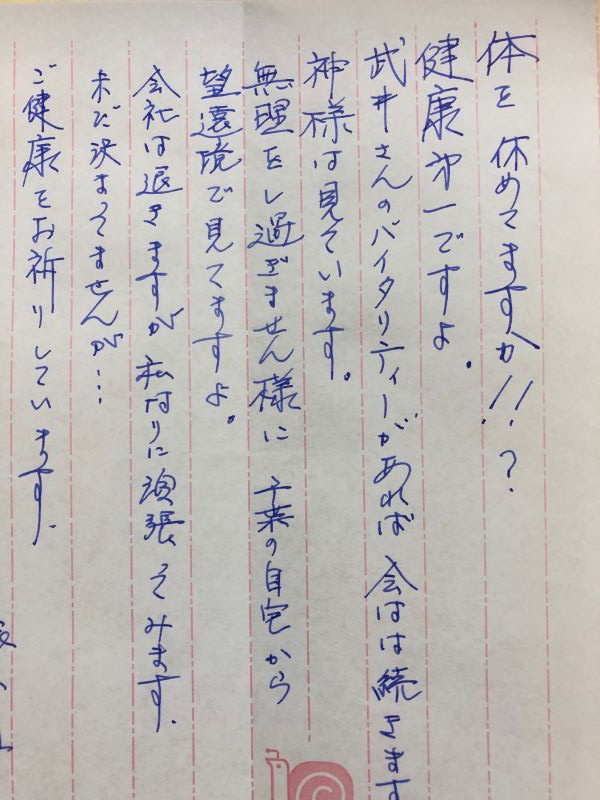 体を休めてますか!!?
健康第一ですよ。
武井さんのバイタリティーがあれば 会はは続きます
神様は見ています。
無理をし過ぎません様に 千葉の自宅から
望遠境で見てますよ。
会社は退きますが 私なりに頑張ってみます。
未だ決まってませんが…
ご健康をお祈りしています。